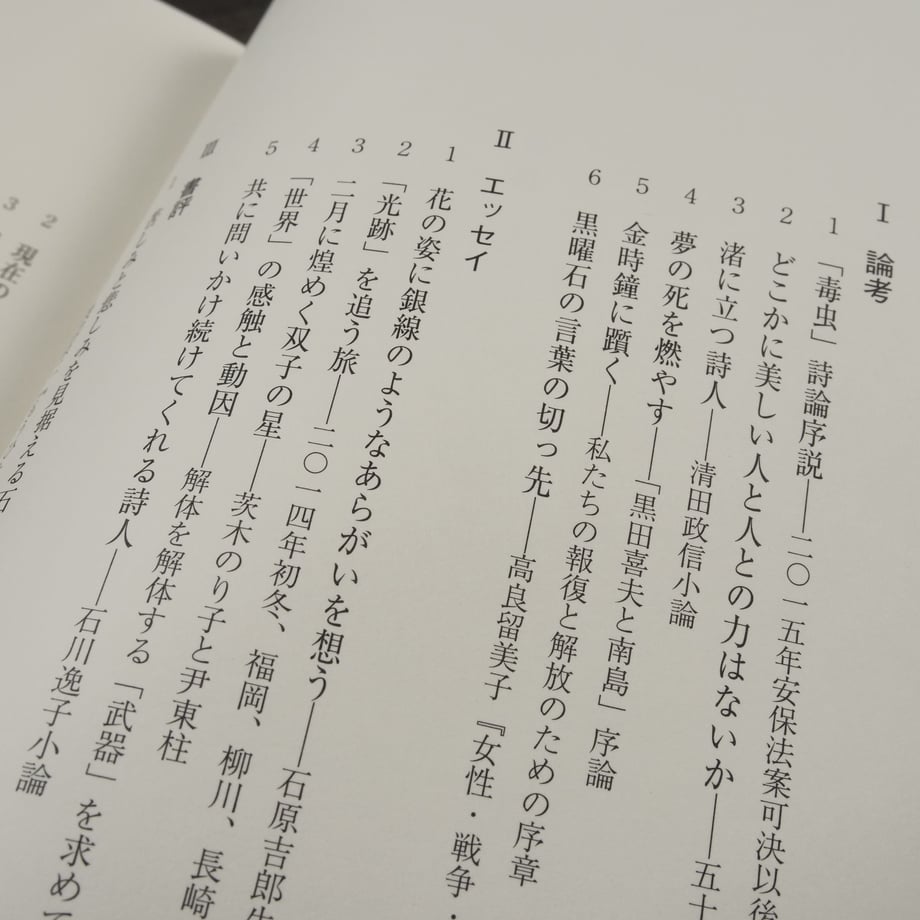 Ⅰ 論考
1 「毒虫」詩論序説――二〇一五年安保法案可決以後
2 どこかに美しい人と人との力はないか――五十
3 渚に立つ詩人――清田政信小論
4 夢の死を燃やす――「黒田喜夫と南島」序論
5 金時鐘に躓く――私たちの報復と解放のための序章
6 黒曜石の言葉の切っ先――高良留美子『女性・戦争・
Ⅱ エッセイ
1 花の姿に銀線のようなあらがいを想う――石原吉郎
2 「光跡」を追う旅――二〇一四年初冬、福岡、柳川、長崎
3 二月に煌めく双子の星――茨木のり子と尹東柱
4 「世界」の感触と動因――解体を解体する「武器」を求めて
5 共に問いかけ続けてくれる詩人――石川逸子小論
Ⅲ 書評
しみと悲しみを見据える石
2 現在の
3